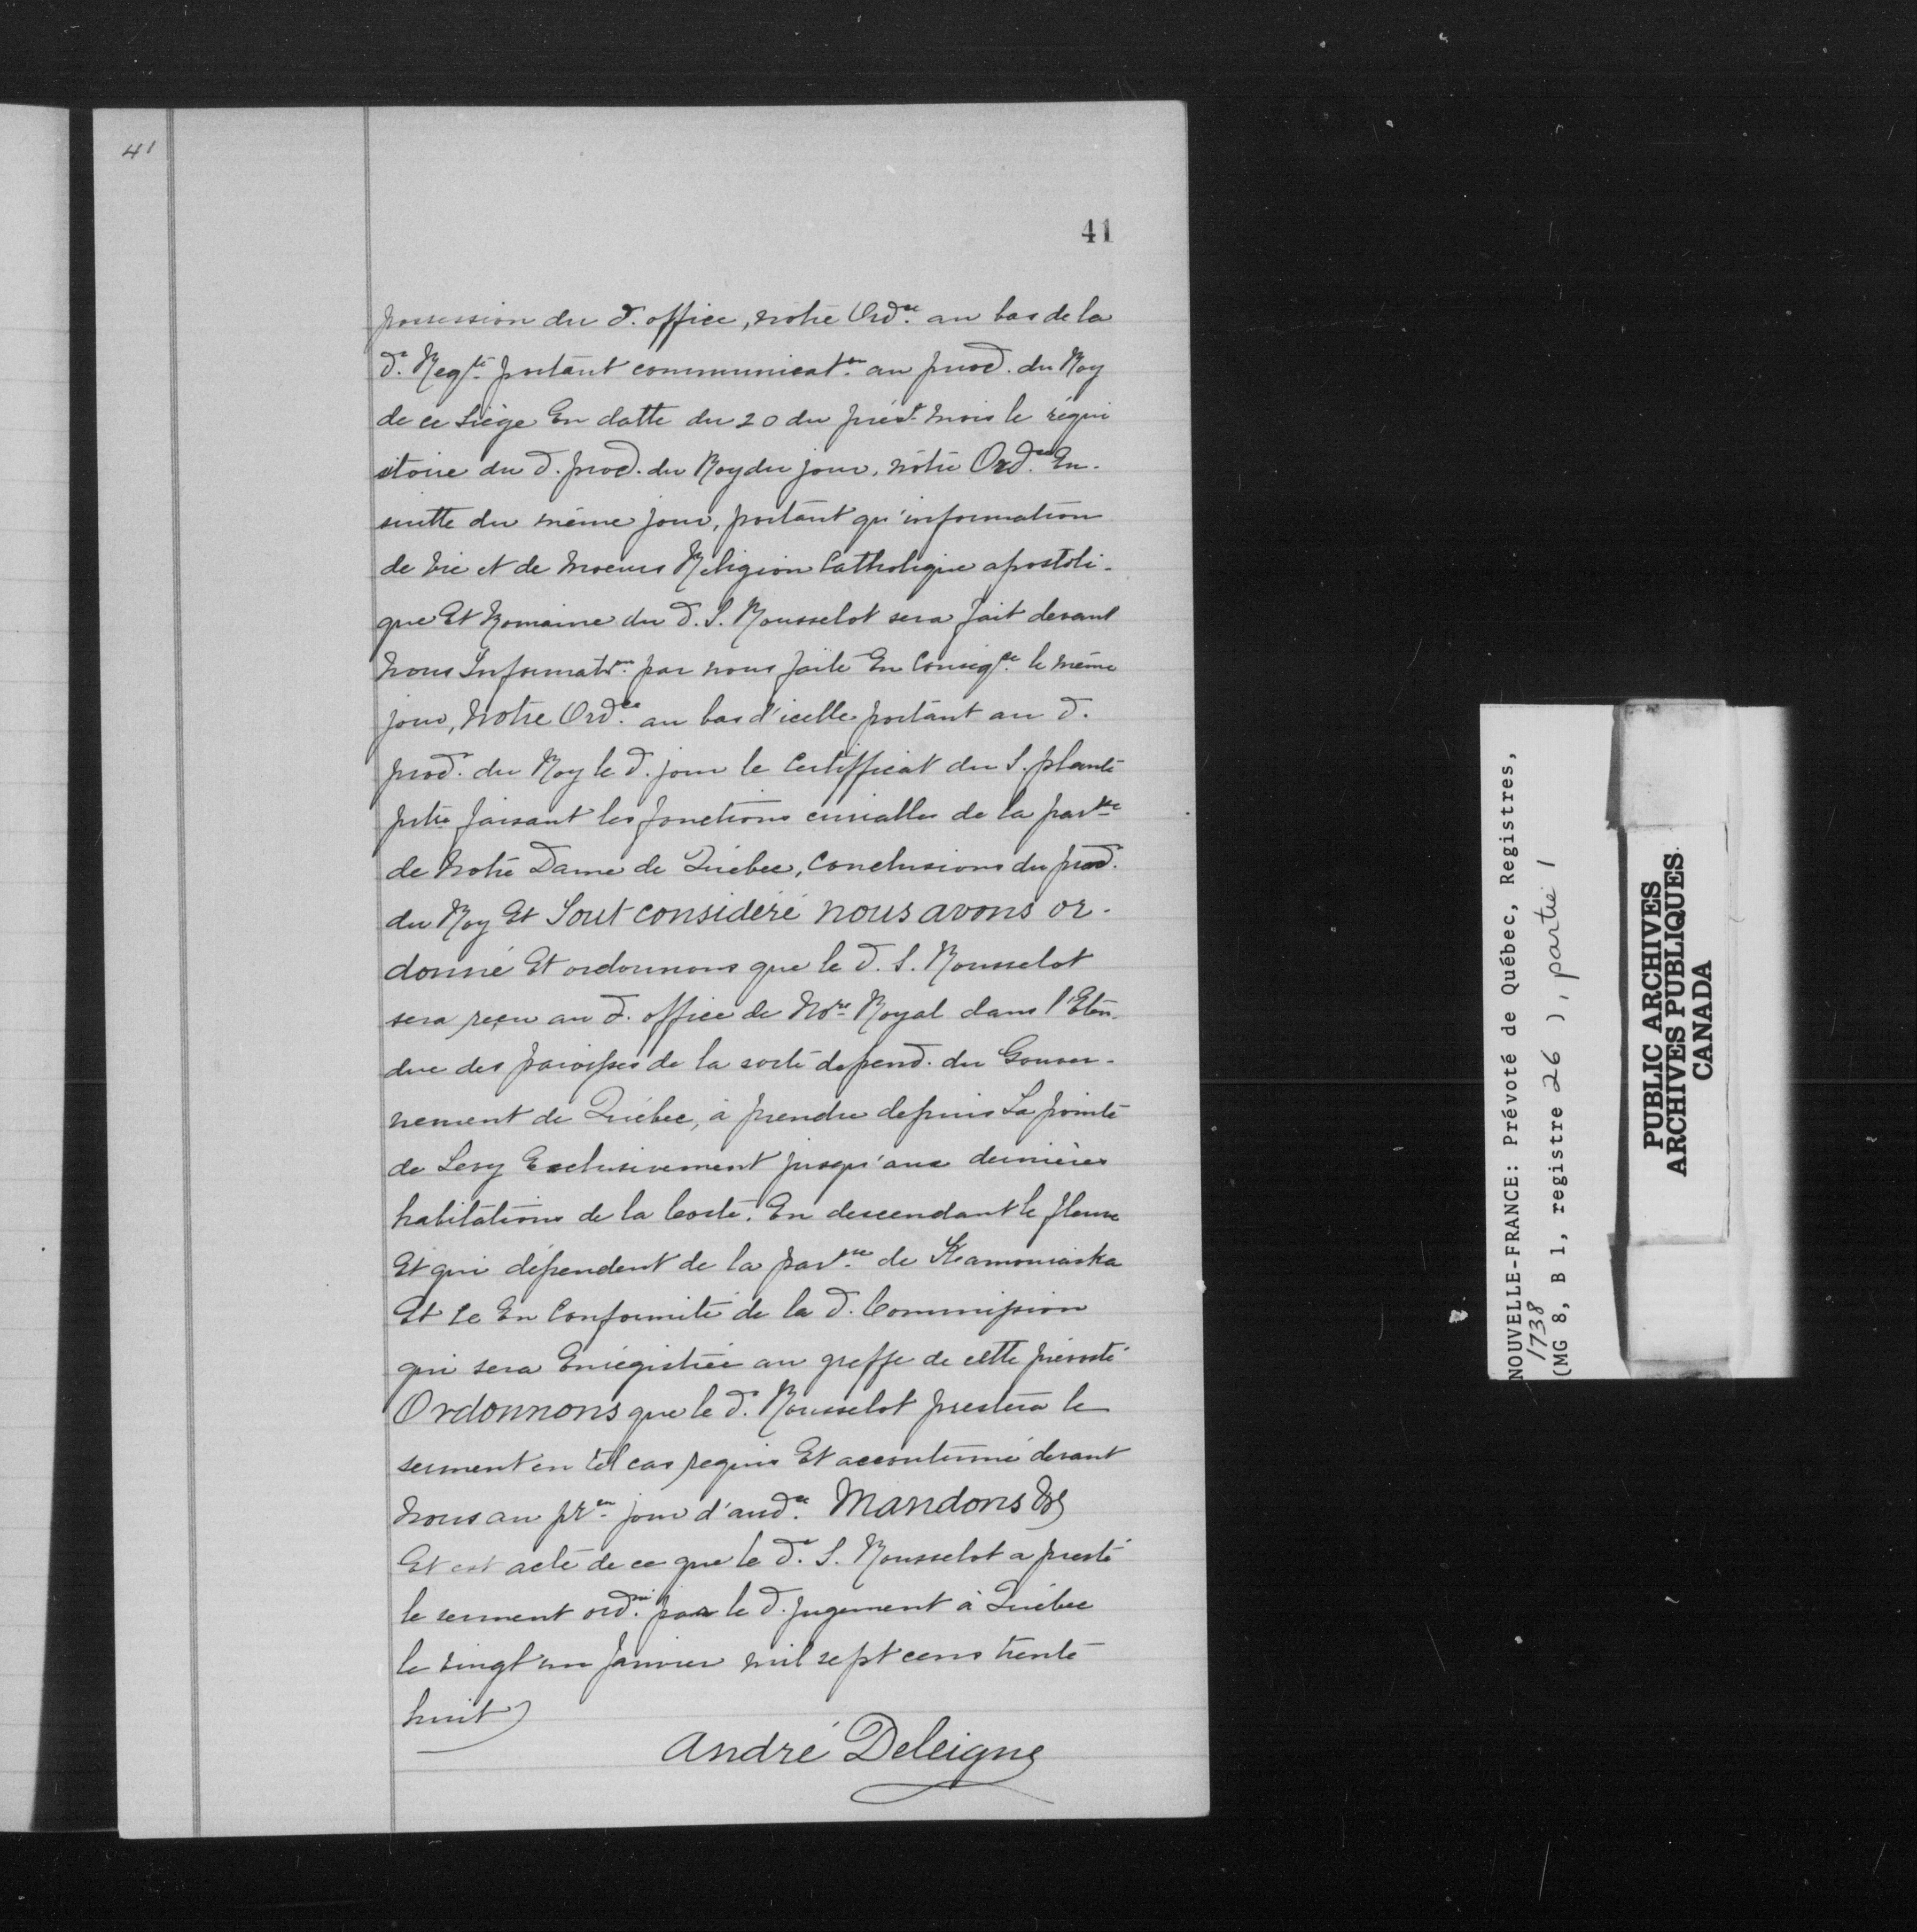 41
41
possession du d. office, notre Ordce. au bas de la
de. Reqte. portant communicaton. au proc. du Roy
de ce Siège En datte du 20 du prést. mois le réqui
sitoire du d. proc. du Roy du jour, nôtre Ordce. En-
suitte du même jour, portant qu'information
de vie et de moeurs Religion Catholique apostoli-
que Et Romaine du d. S. Rousselot sera fait devant
nous Informaton. par nous faite En Conseqce. le même
jour, Notre Ordce. au bas d'icelle portant au d.
proc. du Roy le d. jour le Certifficat du S. plante
ptre faisant les fonctions curialles de la parsse
de Notre Dame de Québec, Conclusions du proc.
du Roy Et Tout considéré nous avons or-
donné Et ordonnons que le d. S. Rousselot
sera reçu au d. office de Nore. Royal dans l'Eten-
due des paroisses de la coste depend. du Gouver-
nement de Québec, à prendre depuis La pointe
de Levy Exclusivement jusqu'aux dernières
habitations de la Coste. En descendant le fleuve
Et qui dépendent de la parsse. de Kamouraska
Et ce En Conformité de la d. Commission
qui sera Enregistrée au greffe de cette prévosté
Ordonnons que le d. Rousselot prestera le
serment en tel cas requis Et accoutumé devant
nous au pren. jour d'audce. Mandons &c
Et est acte de ce que le d. S. Rousselot a presté
le serment ordné. par le d. jugement à Québec
le vingt un Janvier mil sept cens trente
huit
André Deleigne
NOUVELLE-FRANCE: Prévoté de Québec, Registres,
1738
(MG 8, B 1, registre 26 ), partie 1
PUBLIC ARCHIVES
ARCHIVES PUBLIQUES
CANADA